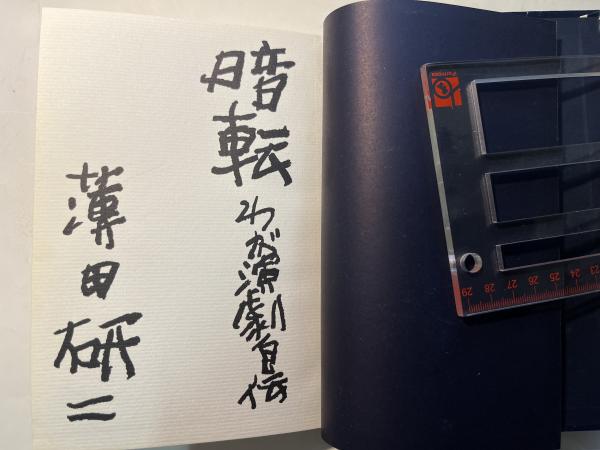 暗転
わが演劇自伝
薄田研二
29 28 27 26 25 24 23